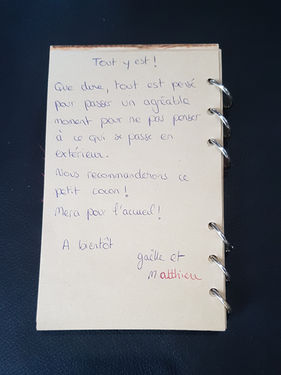 Tout y est !
Que dire, tout est pensé
pour passer un agréable
moment pour ne pas penser
à ce qui se passe en
extérieur.
Nous recommanderons ce
petit cocon !
Merci pour l'accueil !
A bientôt
gaëlle et
Matthieu